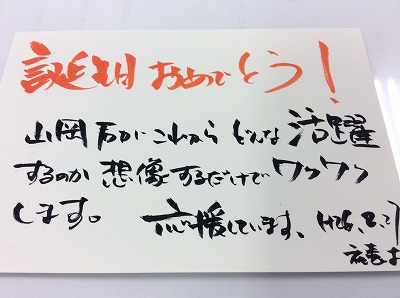 誕生日おめでとう!
山岡君がこれからどんな活躍
するのか想像するだけでワクワク
します。 応援しています、(H26、2、27